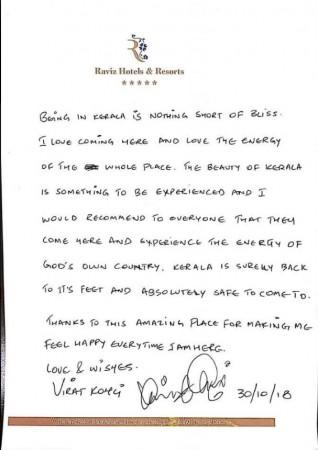 R
Raviz Hotels & Resorts
BEING IN KERALA IS NOTHING SHORT OF BLISS.
I LOVE COMING HERE AND LOVE THE ENERGY
OF THE WHOLE PLACE. THE BEAUTY OF KERALA
IS SOMETHING TO BE EXPERIENCED AND I
WOULD RECOMMEND TO EVERYONE THAT THEY
COME HERE AND EXPERIENCE THE ENERGY OF
GOD'S OWN COUNTRY. KERALA IS SURELY BACK
TO IT'S FEET AND ABSOLUTELY SAFE TO COME TO.
THANKS TO THIS AMAZING PLACE FOR MAKING ME
FEEL HAPPY EVERYTIME I AM HERE.
LOVE & WISHES.
VIRAT KOHLI 30/10/18